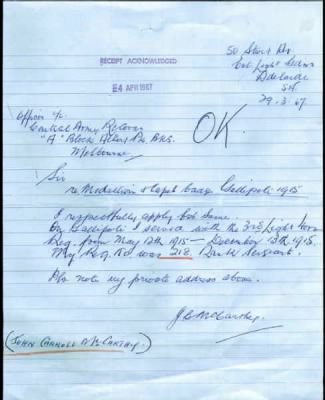 50 Short Av
Col Light Gdns
Adelaide
S.A.
29.3.67
RECEIPT ACKNOWLEDGED
4 APR 1967
Officer i/c
Central Army Records
"A" Block Albert Pk Bks.
Melbourne
OK.
Sir
re Medallion & Lapel badge Gallipoli 1915
I respectfully apply for same.
On Gallipoli I served with the 3rd Light Horse
Reg. from May 12th 1915 — December 13th 1915.
My Reg. No was 218. Sergeant.
Pls note my private address above.
J C McCarthy.
(JOHN CARROLL McCARTHY.)